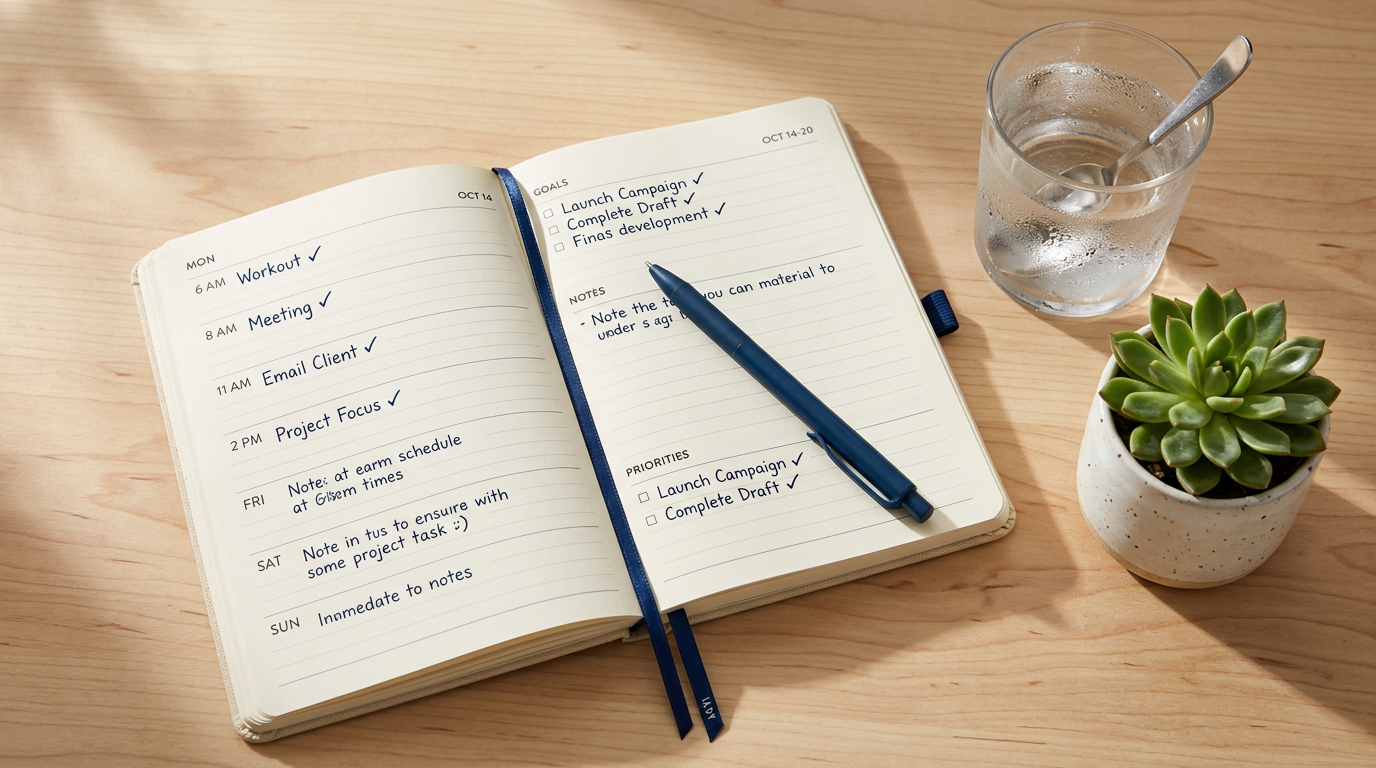 OCT 14
MON
6 AM Workout ✓
8 AM Meeting ✓
11 AM Email Client ✓
2 PM Project Focus ✓
FRI Note: at earm schedule
at times
SAT Note in tus to ensure with
some project task :)
SUN to notes
OCT 14-20
GOALS
☐ Launch Campaign ✓
☐ Complete Draft ✓
☐ Finas development ✓
NOTES
- Note the you can material to
under s
PRIORITIES
☐ Launch Campaign ✓
☐ Complete Draft ✓